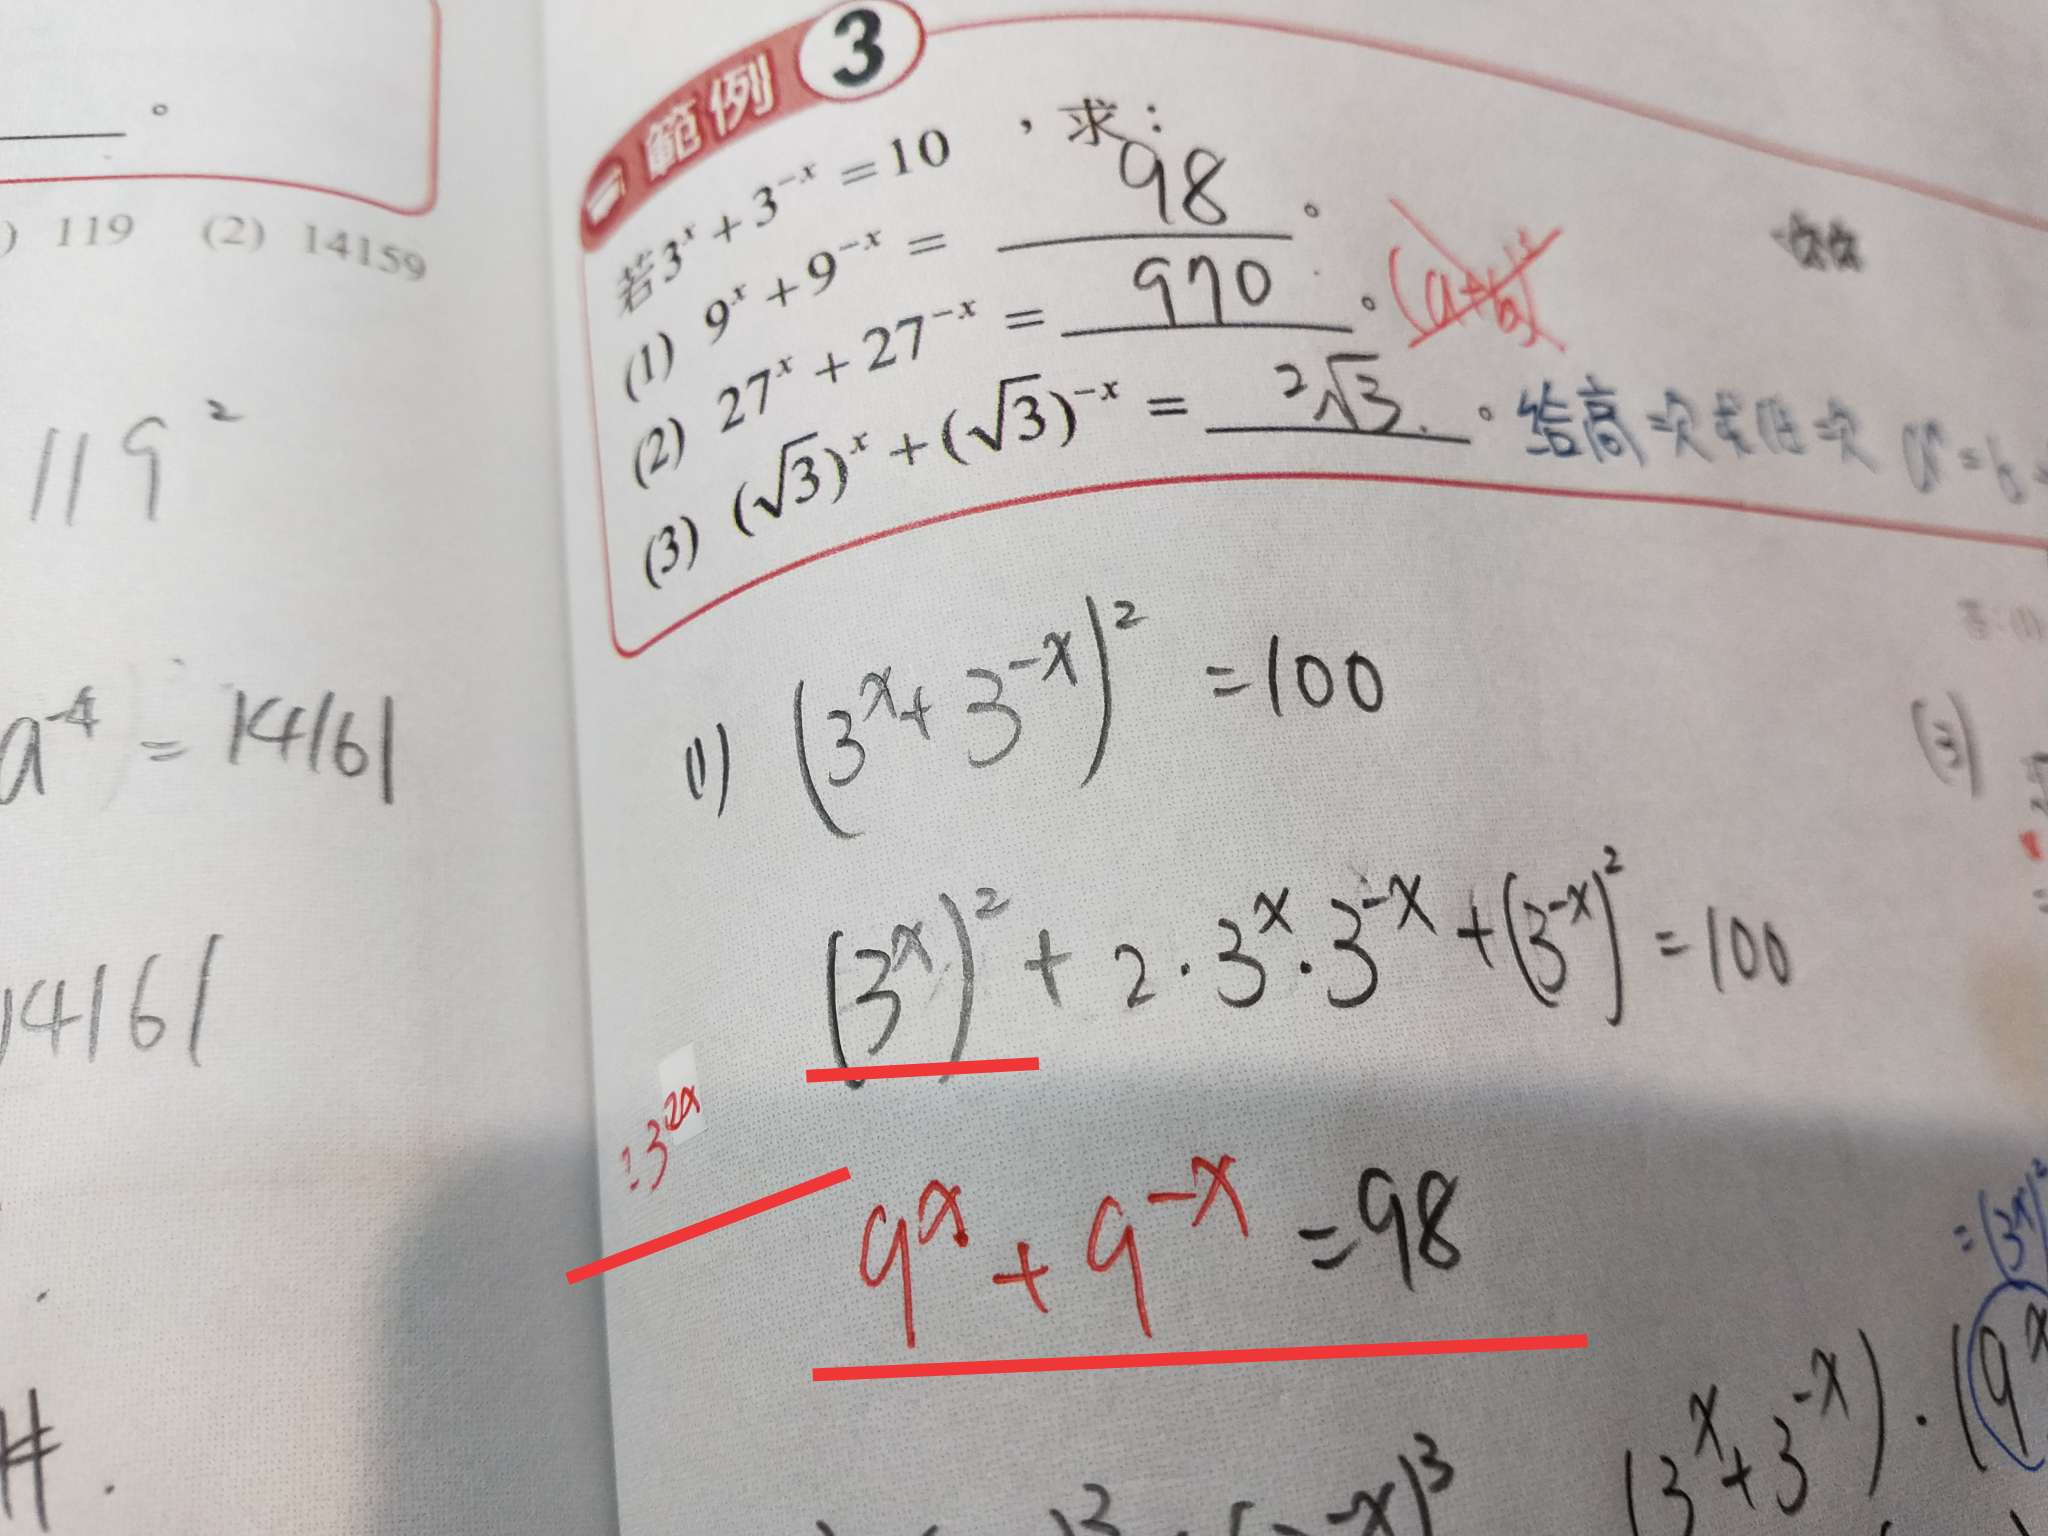 。
) 119 (2) 14159
119²
a⁻⁴ = 14161
14161
範例 3
若3ˣ + 3⁻ˣ = 10 ,求:
(1) 9ˣ + 9⁻ˣ = 98 。
(2) 27ˣ + 27⁻ˣ = 970 。 (a+b)²
(3) (√3)ˣ + (√3)⁻ˣ = 2√3 。 給高次求低次
(1) (3ˣ + 3⁻ˣ)² = 100
(3)
(3ˣ)² + 2 · 3ˣ · 3⁻ˣ + (3⁻ˣ)² = 100
: 3²ˣ
9ˣ + 9⁻ˣ = 98
= (3ˣ)²
(3ˣ + 3⁻ˣ) · (9ˣ